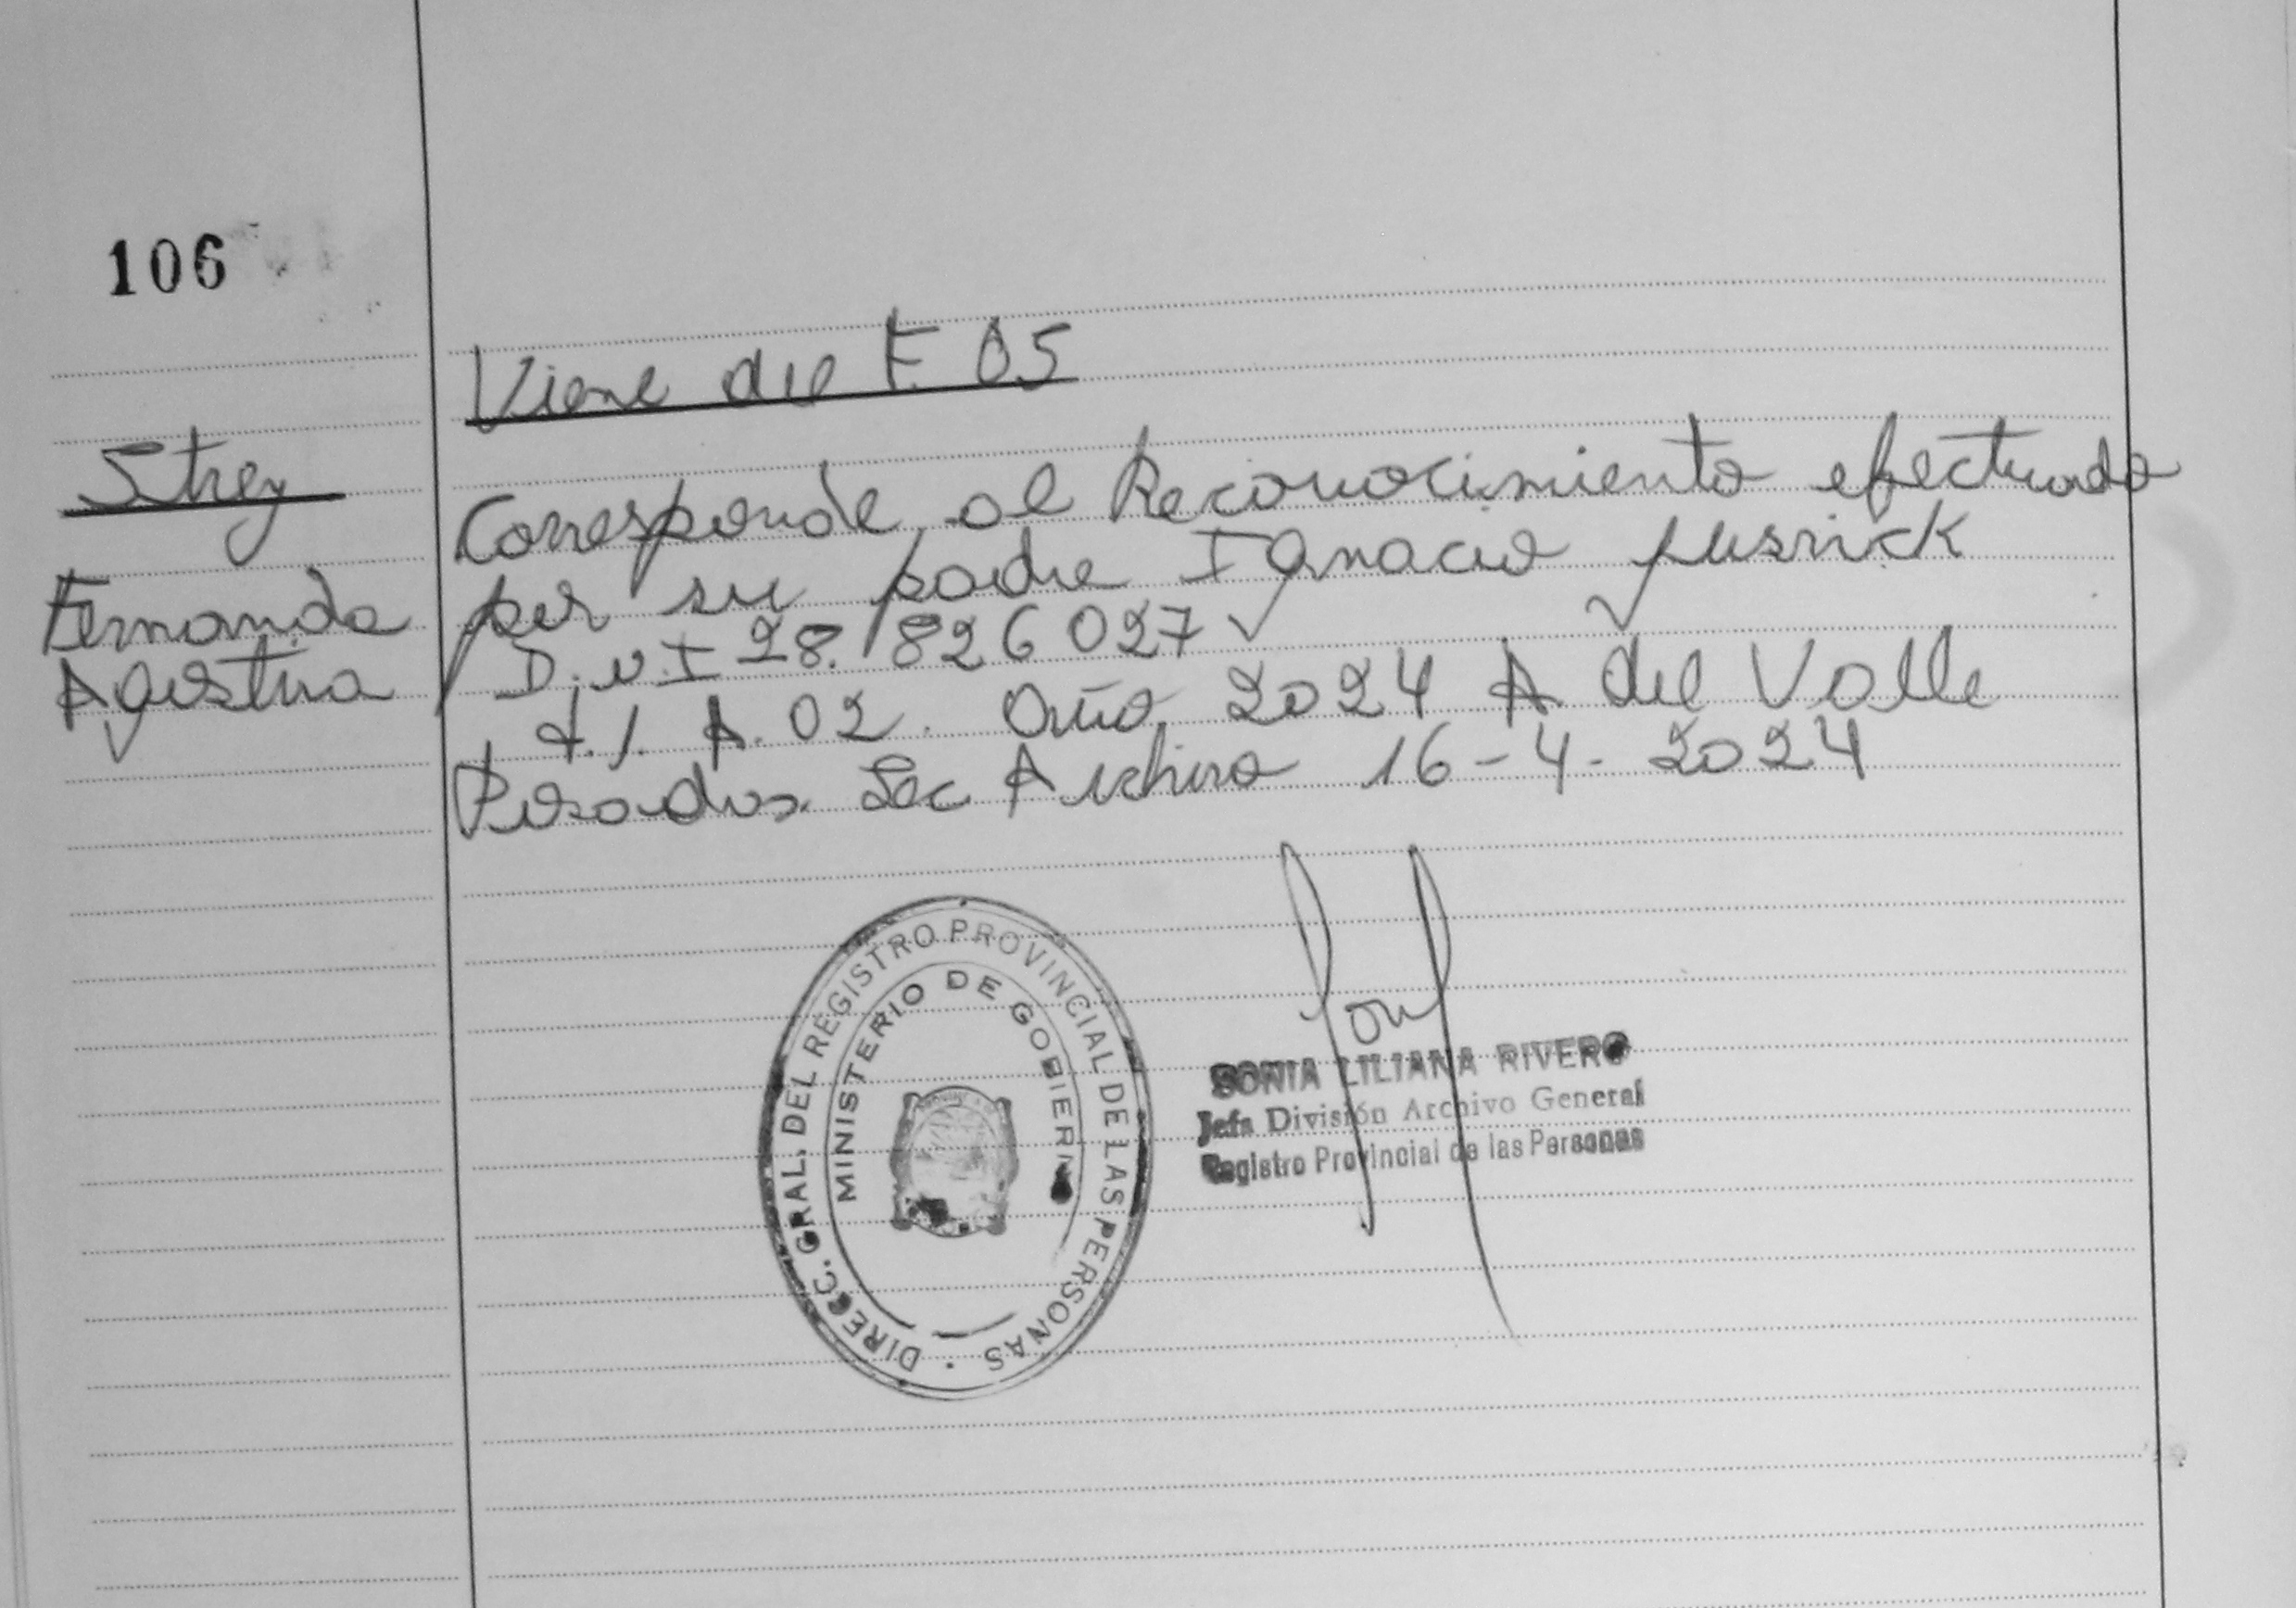 106
Viene del F. 05
Strey
Fernanda
Agustina
Corresponde al Reconocimiento efectuado
por su padre Ignacio
D.N.I 28.826027
T.1. A. 02. Año 2024 A del Valle
Posadas Sec Archivo 16-4-2024
DIRECC. GRAL. DEL REGISTRO PROVINCIAL DE LAS PERSONAS
MINISTERIO DE GOBIERNO
SONIA LILIANA RIVERO
Jefa División Archivo General
Registro Provincial de las Personas